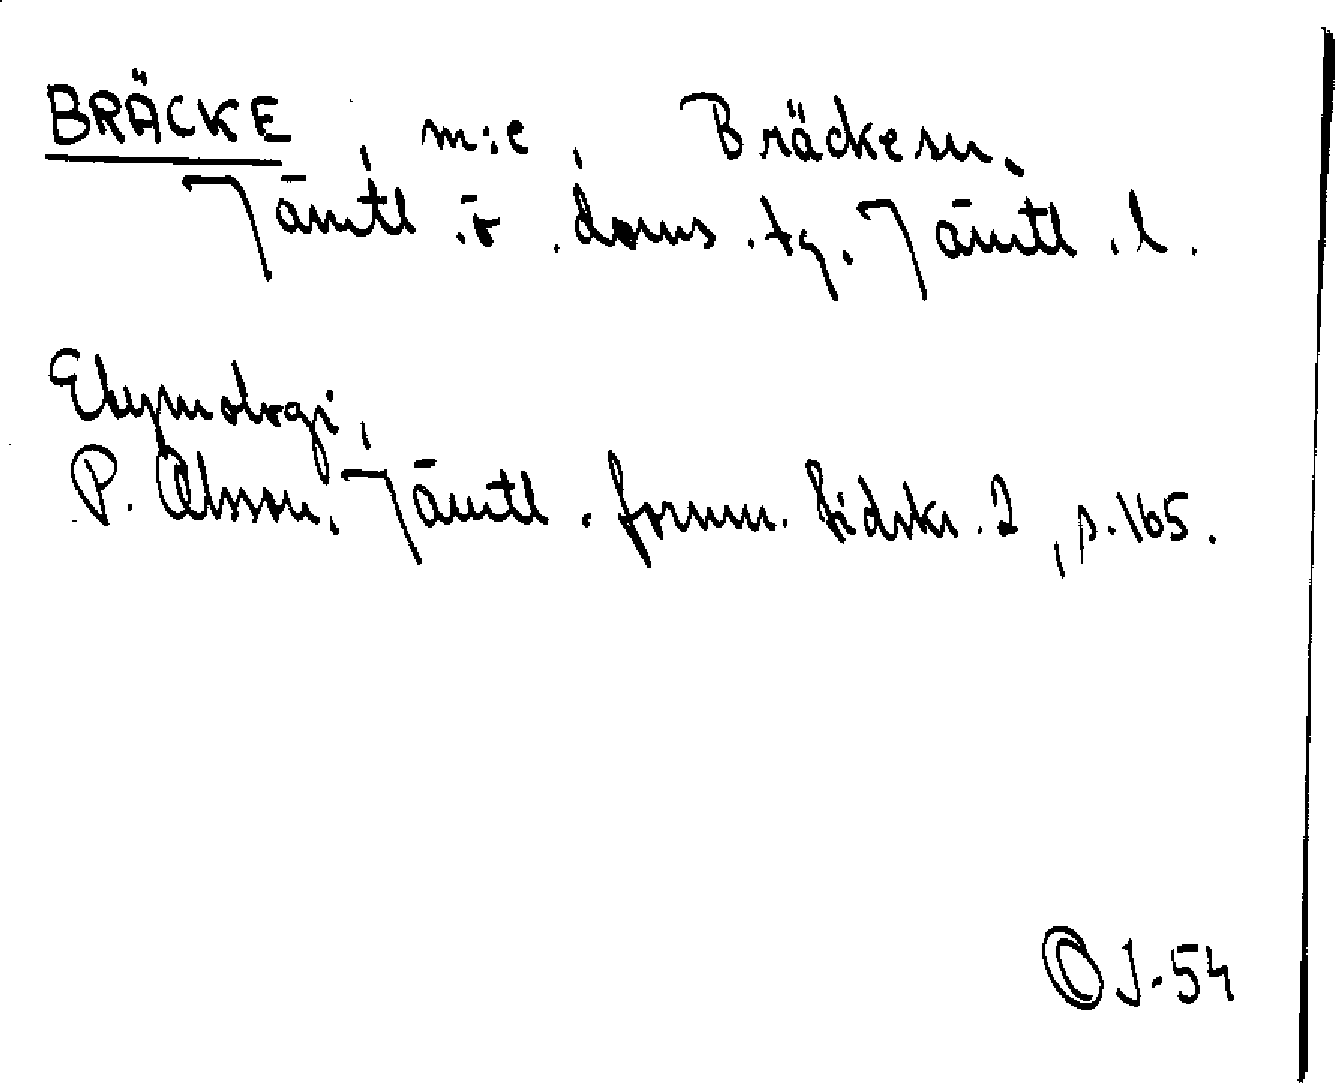 BRÄCKE, m:e, Bräcke sn.
Jämtl.ö.doms.tg. Jämtl.l.
Etymologi,
P. Olsson, Jämtl. fornm. tidskr. 2, s. 165.
OJ-54